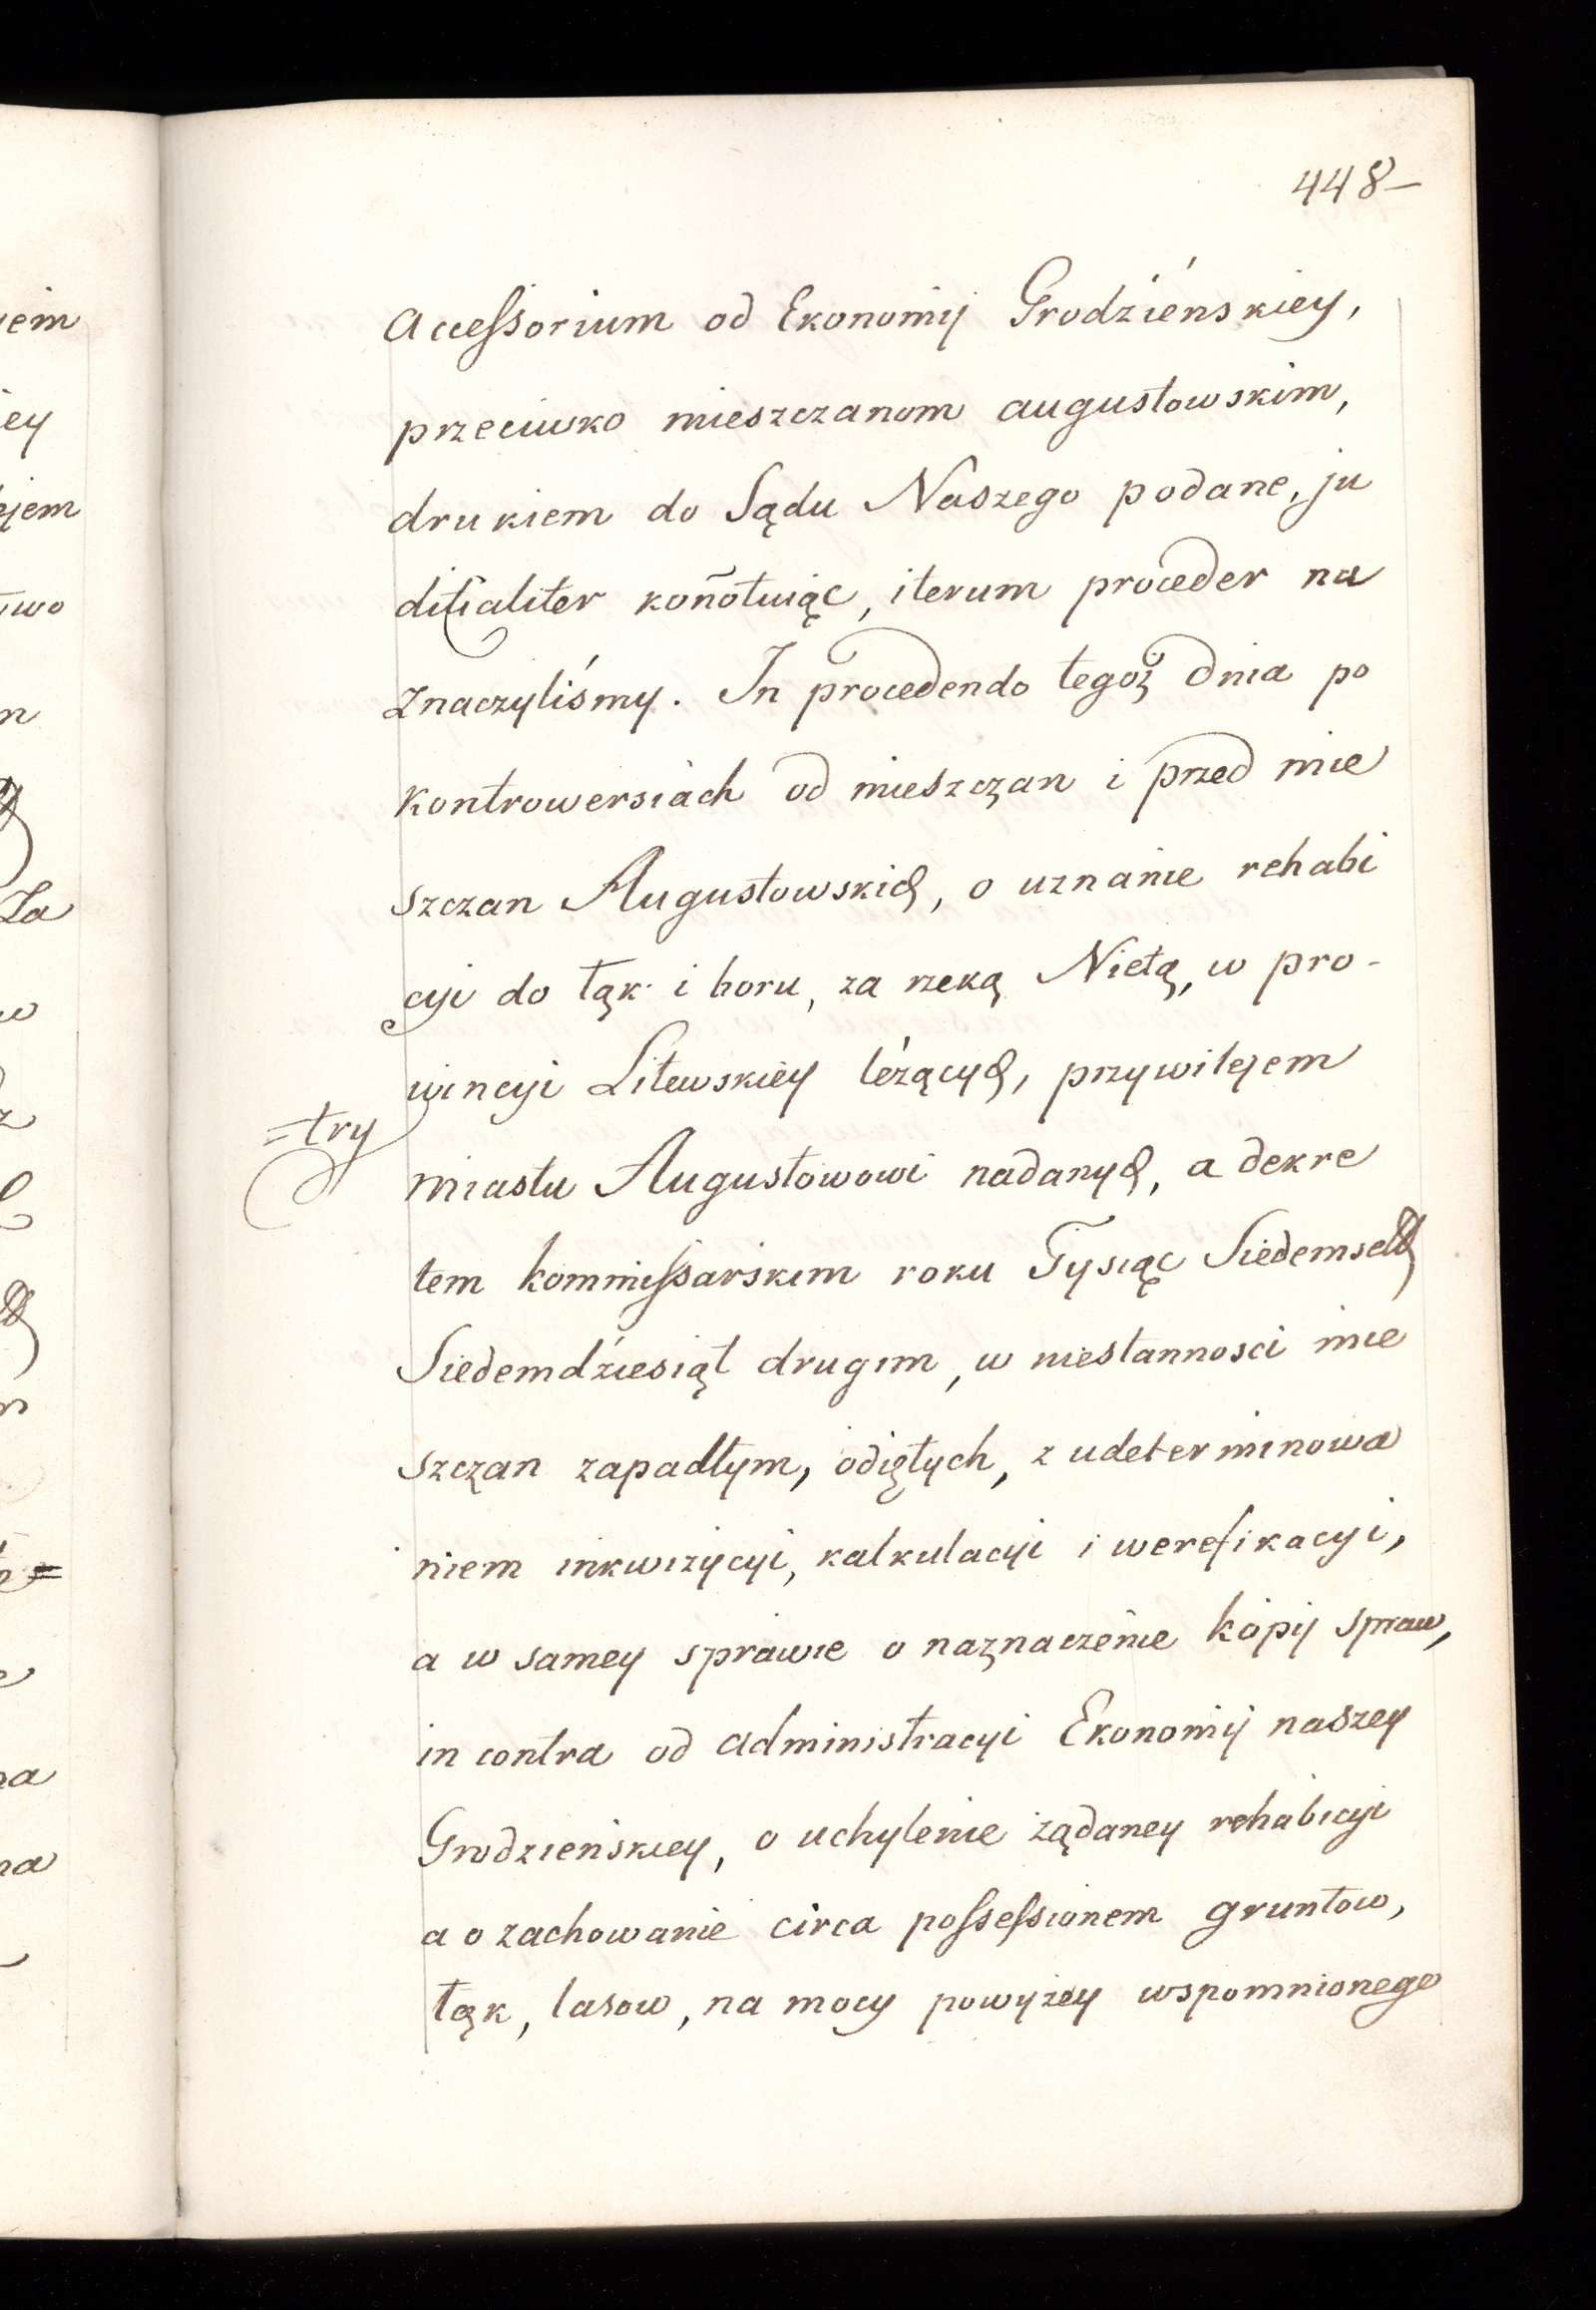 448-
accessorium od Ekonomij Grodzieńskiey,
przeciwko mieszczanom augustowskim,
drukiem do Sądu Naszego podane, ju
ditialiter koñotuiąc, iterum proceder na
znaczyliśmy. In procedendo tegoż dnia po
kontrowersiach od mieszczan i przed mie
szczan Augustowskich, o uznanie rehabi
cyi do łąk i boru, za rzeką Nietą, w pro-
wincyi Litewskiey leżących, przywilejem
=try
miastu Augustowowi nadanych, a dekre
tem kommissarskim roku Tysiąc Siedemset
Siedemdziesiąt drugim, w niestannosci mie
szczan zapadłym, odiętych, z udeterminowa
niem inkwizycyi, kalkulacyi i werefikacyi,
a w samey sprawie o naznaczenie kopij spraw,
in contra od administracyi Ekonomij naszey
Grodzieńskiey, o uchylenie żądaney rehabicyi
a o zachowanie circa possessionem gruntow,
łąk, lasow, na mocy powyżey wspomnionego
iem
ey
jem
two
n
Za
w
z
n
e
na
na